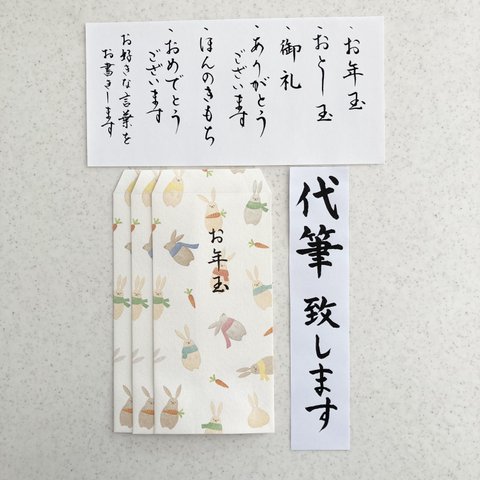 ・お年玉
・おとし玉
・御礼
・ありがとう
ございます
・ほんのきもち
・おめでとう
ございます
お好きな言葉を
お書きします
お年玉
代筆致します